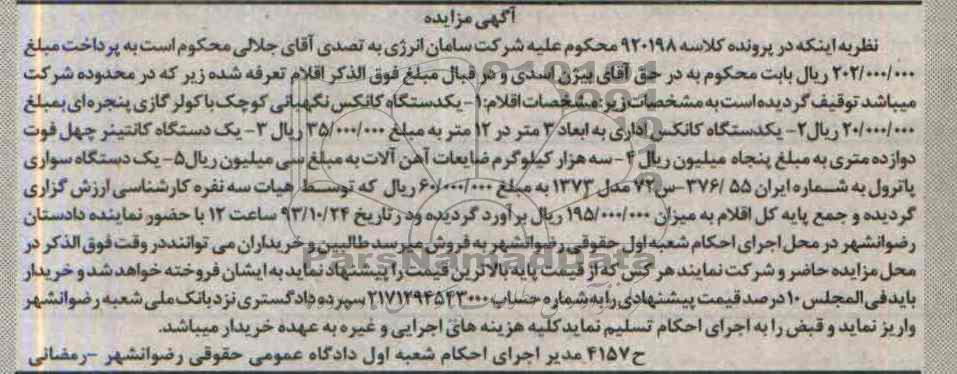 آگهی مزایده
نظر به اینکه در پرونده کلاسه ۹۲۰۱۹۸ محکوم علیه شرکت سامان انرژی به تصدی آقای جلالی محکوم است به پرداخت مبلغ
۲۰۲/۰۰۰/۰۰۰ ریال بابت محکوم به در حق آقای بیژن اسدی و در قبال مبلغ فوق الذکر اقلام تعرفه شده زیر که در محدوده شرکت
میباشد توقیف گردیده است به مشخصات زیر: مشخصات اقلام: ۱- یکدستگاه کانکس نگهبانی کوچک با کولر گازی پنجره ای بمبلغ
۲۰/۰۰۰/۰۰۰ ریال ۲- یکدستگاه کانکس اداری به ابعاد ۳ متر در ۱۲ متر به مبلغ ۳۵/۰۰۰/۰۰۰ ریال ۳- یک دستگاه کانتینر چهل فوت
دوازده متری به مبلغ پنجاه میلیون ریال ۴- سه هزار کیلوگرم ضایعات آهن آلات به مبلغ سی میلیون ریال ۵- یک دستگاه سواری
پاترول به شماره ایران ۵۵ /۳۷۶-س۷۲ مدل ۱۳۷۳ به مبلغ ۶۰/۰۰۰/۰۰۰ ریال که توسط هیات سه نفره کارشناسی ارزش گزاری
گردیده و جمع پایه کل اقلام به میزان ۱۹۵/۰۰۰/۰۰۰ ریال برآورد گردیده ودر تاریخ ۹۳/۱۰/۲۴ ساعت ۱۲ با حضور نماینده دادستان
رضوانشهر در محل اجرای احکام شعبه اول حقوقی رضوانشهر به فروش میرسد طالبین و خریداران می توانند در وقت فوق الذکر در
محل مزایده حاضر و شرکت نمایند هر کس که از قیمت پایه بالاترین قیمت را پیشنهاد نماید به ایشان فروخته خواهد شد و خریدار
باید فی المجلس ۱۰ درصد قیمت پیشنهادی را به شماره حساب ۲۱۷۱۲۹۴۵۴۳۰۰۰ سپرده دادگستری نزد بانک ملی شعبه رضوانشهر
واریز نماید و قبض را به اجرای احکام تسلیم نماید کلیه هزینه های اجرایی و غیره به عهده خریدار میباشد.
ح۴۱۵۷ مدیر اجرای احکام شعبه اول دادگاه عمومی حقوقی رضوانشهر -رمضانی
ParsNamadData